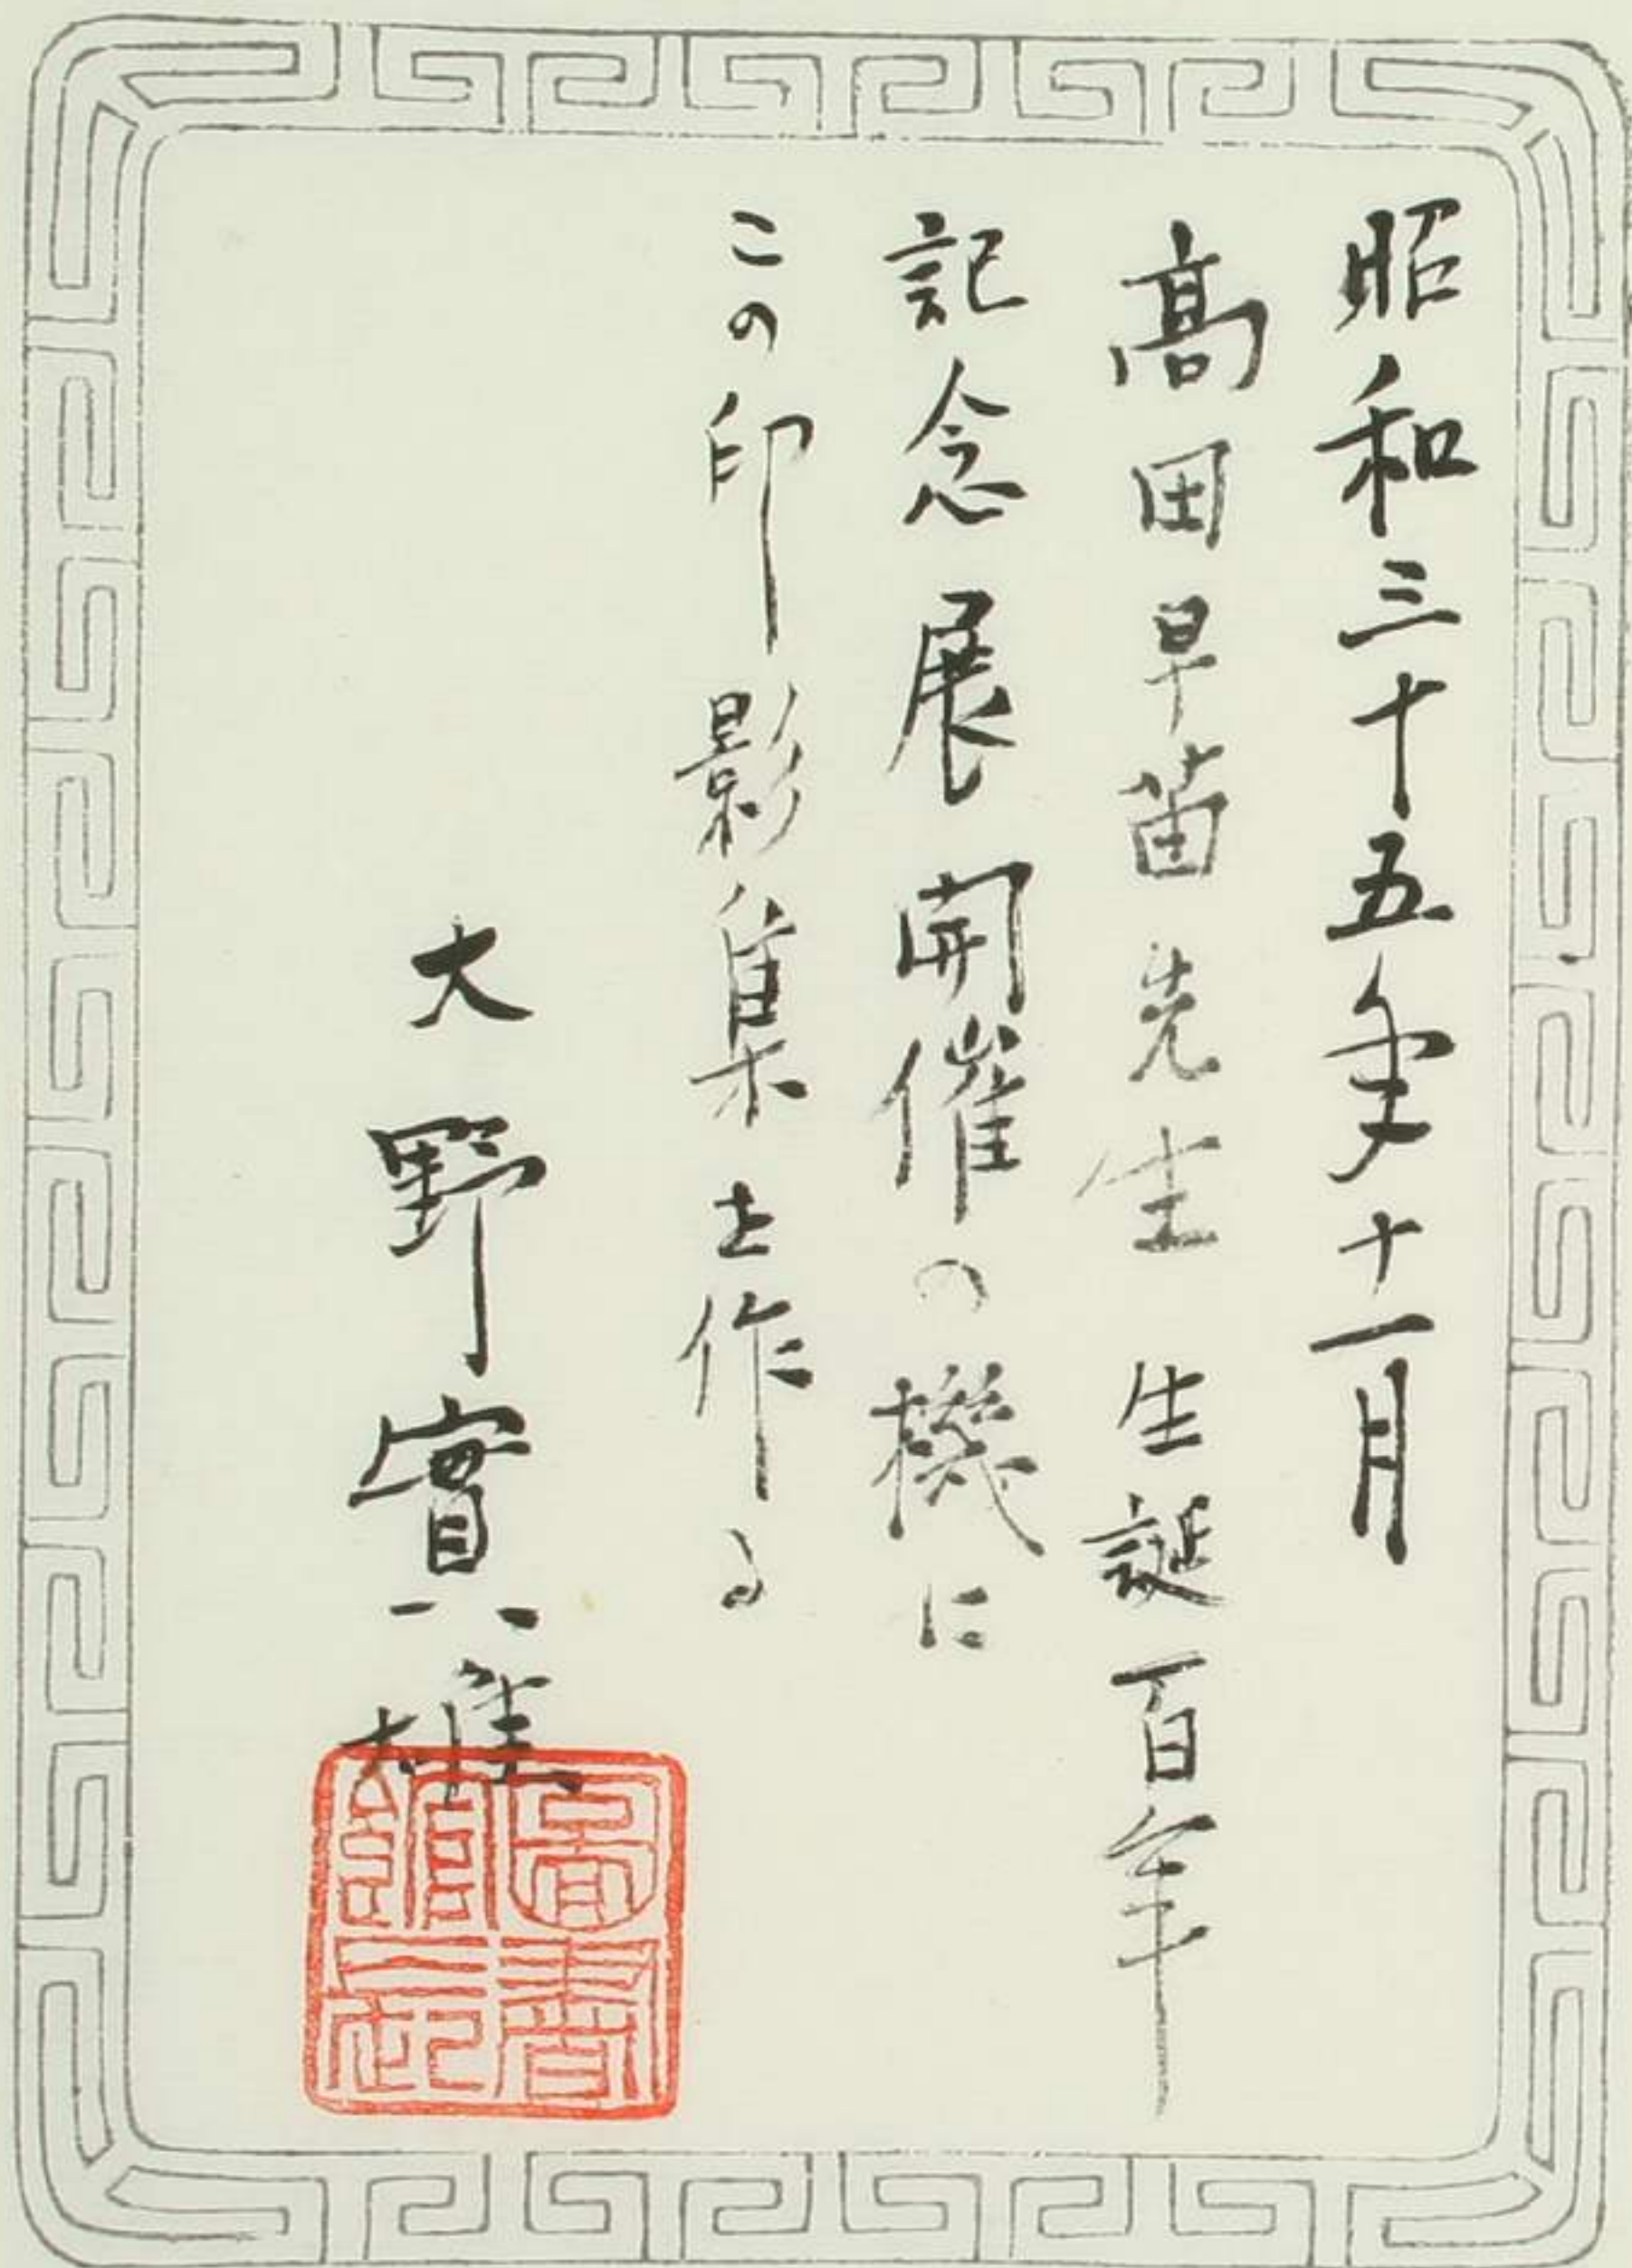 昭和三十五年十一月
高田早苗先生 生誕百年
記念展開催の機に
この印影集を作る
大野實雄
圖書館